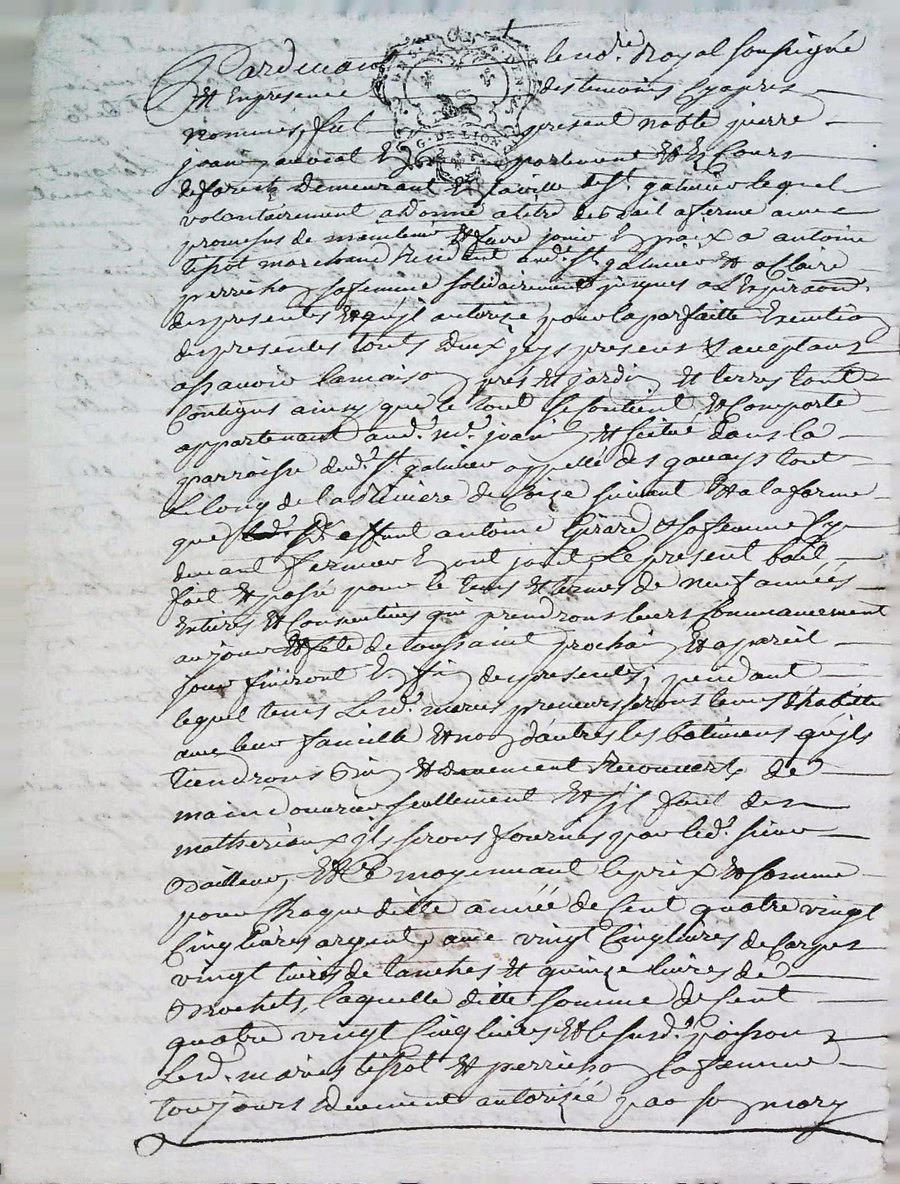 Pardevant le no.re Royal soussigné
Et En presence des temoins cyapres
nommes, fut present noble pierre
jean, avocat En parlement Et Es Cours
de forest Demeurant En la ville de S.t galmier lequel
volontairement a donné a titre de bail a ferme avec
promesses de maintenir Et faire jouir En paix a antoine
tessot marchand Residant aud. S.t galmier Et a Claire
perrichon sa femme solidairement jusques a L'Expiraon.
des presentes Et qu'il autorise pour la parfaitte Execution
des presentes touts deux jcys presents & acceptants
assavoir la maison, prés Et jardin Et terres tout
Contigus ainsy que le tout se Contient Et Comporte
appartenant aud. m.e jean Et scitué dans la
parroisse dud. S.t galmier appellé des gavays tout
Le long de la Riviere de Coize suivant Et a la forme
que deffunt antoine Girard Et sa femme Cy
devant fermier En ont jouit. Le present bail
fait Et passé pour le tems Et termes de neuf années
Entieres Et Consecutives que prendrons leurs Commancement
au jour Et fete de toussaint prochain Et a pareil
jour finiront En fin des presentes; pendant
lequel tems Lesd. maries preneurs serons tenus d'habitter
avec leur famille Et non d'autres les batiments qu'ils
tiendrons Bien Et Deuement Recouverts de
main d'ouvrier seullement Et s'jl faut des
matheriaux jls serons fournis par led. sieur
Bailleur, Et Ce moyennant le prix Et somme
pour Chaque ditte année de Cent quatre vingt
Cinq livres argent, avec vingt Cinq livres de Carpes
vingt livres de tanches Et quinze livres de
Brochets, laquelle ditte somme de Cent
quatre vingt Cinq livres Et le susd. poisson
Lesd. maries tessot Et perrichon sa femme
toujours Deuement autorisée par so mary